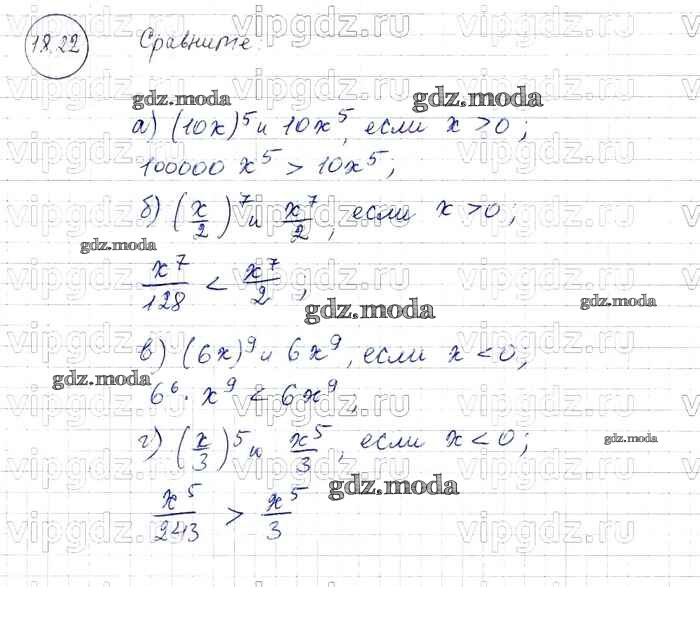 18.22 Сравните:
gdz.moda gdz.moda
а) (10x)^5 и 10x^5, если x > 0;
100000 x^5 > 10x^5;
б) (x/2)^7 и x^7/2, если x > 0;
gdz.moda
x^7/128 < x^7/2;
gdz.moda gdz.moda
в) (6x)^9 и 6x^9, если x < 0;
gdz.moda
6^6 · x^9 < 6x^9;
г) (x/3)^5 и x^5/3, если x < 0;
gdz.moda
gdz.moda
x^5/243 > x^5/3
vipgdz.ru